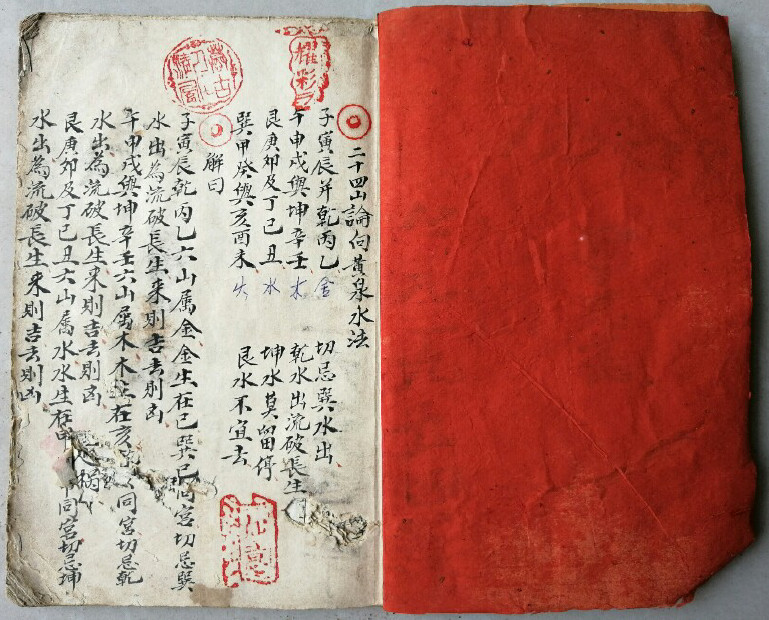 耀彩
二十四山論向黃泉水法
子寅辰并乾丙乙金 切忌巽水出
午申戌與坤辛壬木 乾水出流破長生
艮庚卯及丁巳丑水 坤水莫留停
巽甲癸與亥酉未火 艮水不宜去
解曰
子寅辰乾丙乙六山属金金生在巳巽巳同宮切忌巽
水出為流破長生来則吉去則凶
午申戌與坤辛壬六山属木木生在亥同宮切忌乾
水出為流破長生来則吉去則凶
艮庚卯及丁巳丑六山属水水生在申同宮切忌坤
水出為流破長生来則吉去則凶